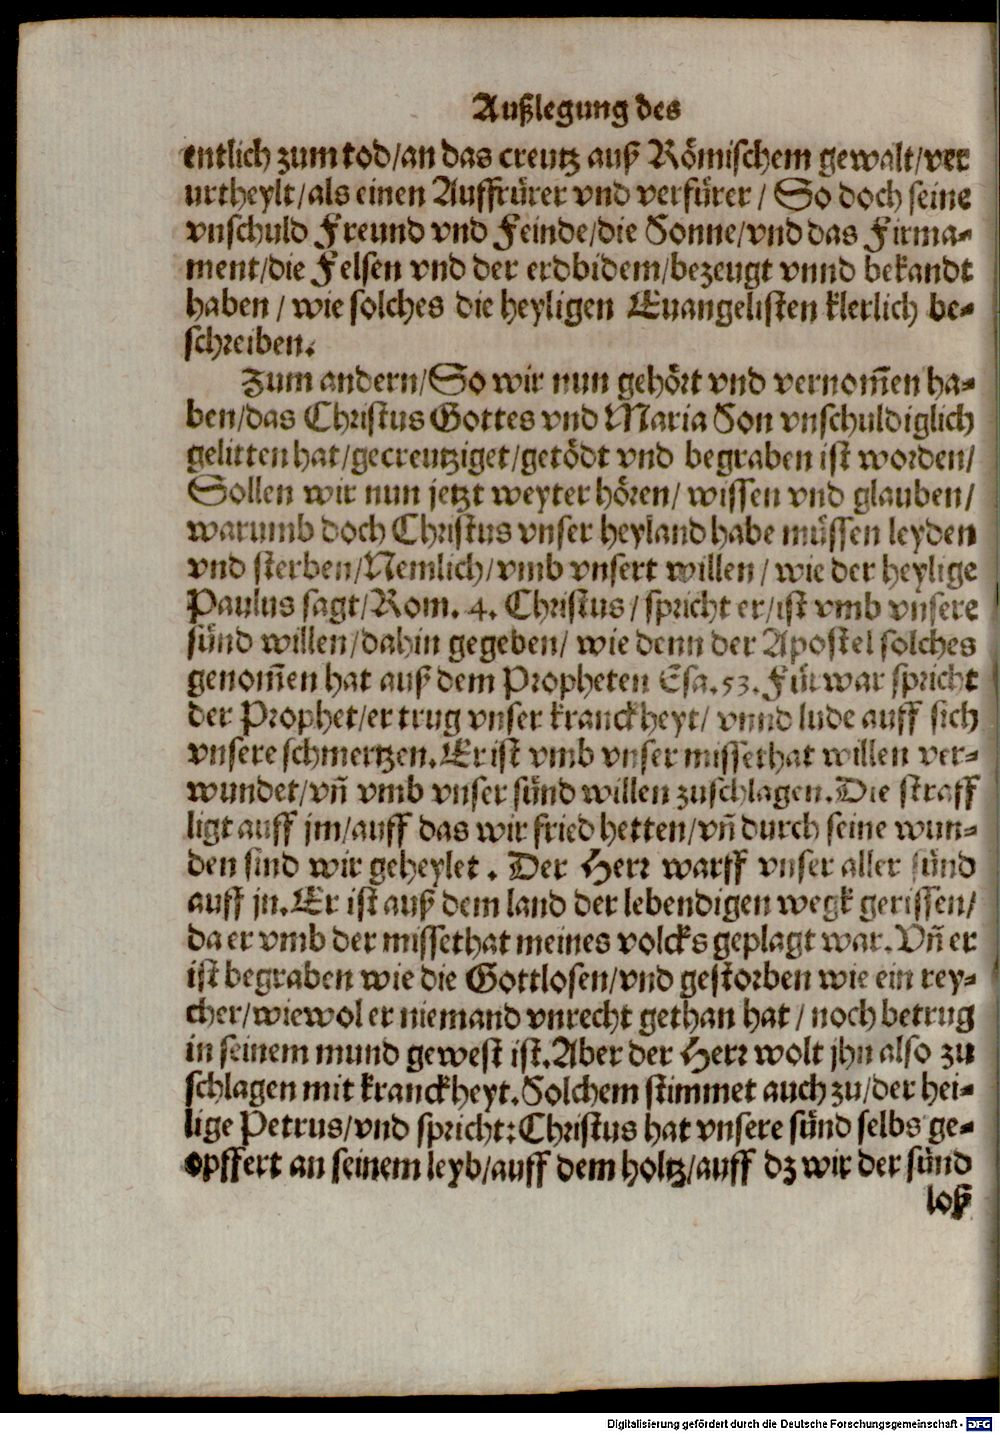 Außlegung des
entlich zum tod/an das creutz auß Römischem gewalt/ver
urtheylt/als einen Auffrürer vnd verfürer / So doch seine
vnschuld Freund vnd Feinde/die Sonne/vnd das Firma-
ment/die Felsen vnd der erdbidem/bezeugt vnnd bekandt
haben / wie solches die heyligen Euangelisten klerlich be-
schreiben.
Zum andern/So wir nun gehört vnd vernom̄en ha-
ben/das Christus Gottes vnd Maria Son vnschuldiglich
gelitten hat/gecreutziget/getödt vnd begraben ist worden/
Sollen wir nun jetzt weyter hören/ wissen vnd glauben/
warumb doch Christus vnser heyland habe müssen leyden
vnd sterben/Nemlich/vmb vnsert willen / wie der heylige
Paulus sagt/Rom. 4. Christus / spricht er/ist vmb vnsere
sünd willen/dahin gegeben/ wie denn der Apostel solches
genom̄en hat auß dem Propheten Esa.53. Fürwar spricht
der Prophet/er trug vnser kranckheyt/ vnnd lude auff sich
vnsere schmertzen. Er ist vmb vnser missethat willen ver-
wundet/vn̄ vmb vnser sünd willen zuschlagen. Die straff
ligt auff jm/auff das wir fried hetten/vn̄ durch seine wun-
den sind wir geheylet . Der Herr warff vnser aller sünd
auff jn. Er ist auß dem land der lebendigen wegk gerissen/
da er vmb der missethat meines volcks geplagt war. Vn̄ er
ist begraben wie die Gottlosen/vnd gestorben wie ein rey-
cher/wiewol er niemand vnrecht gethan hat / noch betrug
in seinem mund gewest ist. Aber der Herr wolt jhn also zu
schlagen mit kranckheyt. Solchem stimmet auch zu/der hei-
lige Petrus/vnd spricht: Christus hat vnsere sünd selbs ge-
opffert an seinem leyb/auff dem holtz/auff dz wir der sünd
loß
Digitalisierung gefördert durch die Deutsche Forschungsgemeinschaft - DFG